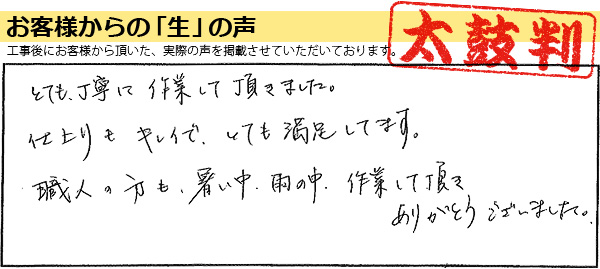 お客様からの「生」の声
太鼓判
工事後にお客様から頂いた、実際の声を掲載させていただいております。
とても、丁寧に 作業して 頂きました。
仕上りも キレイで、とても 満足してます。
職人の方も、暑い中、雨の中、作業して頂き
ありがとう ございました。